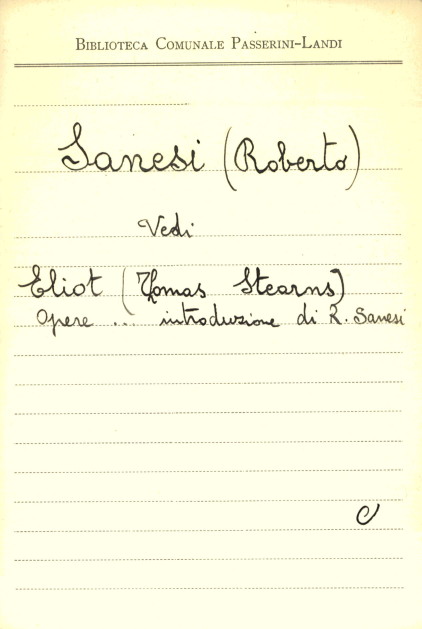 Biblioteca Comunale Passerini-Landi
Sanesi (Roberto)
Vedi
Eliot (Thomas Stearns)
Opere ... introduzione di R. Sanesi